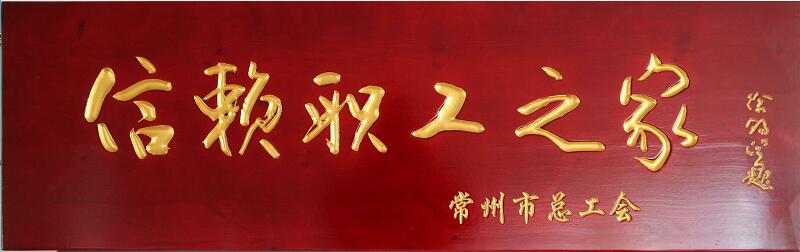 信赖职工之家
常州市总工会